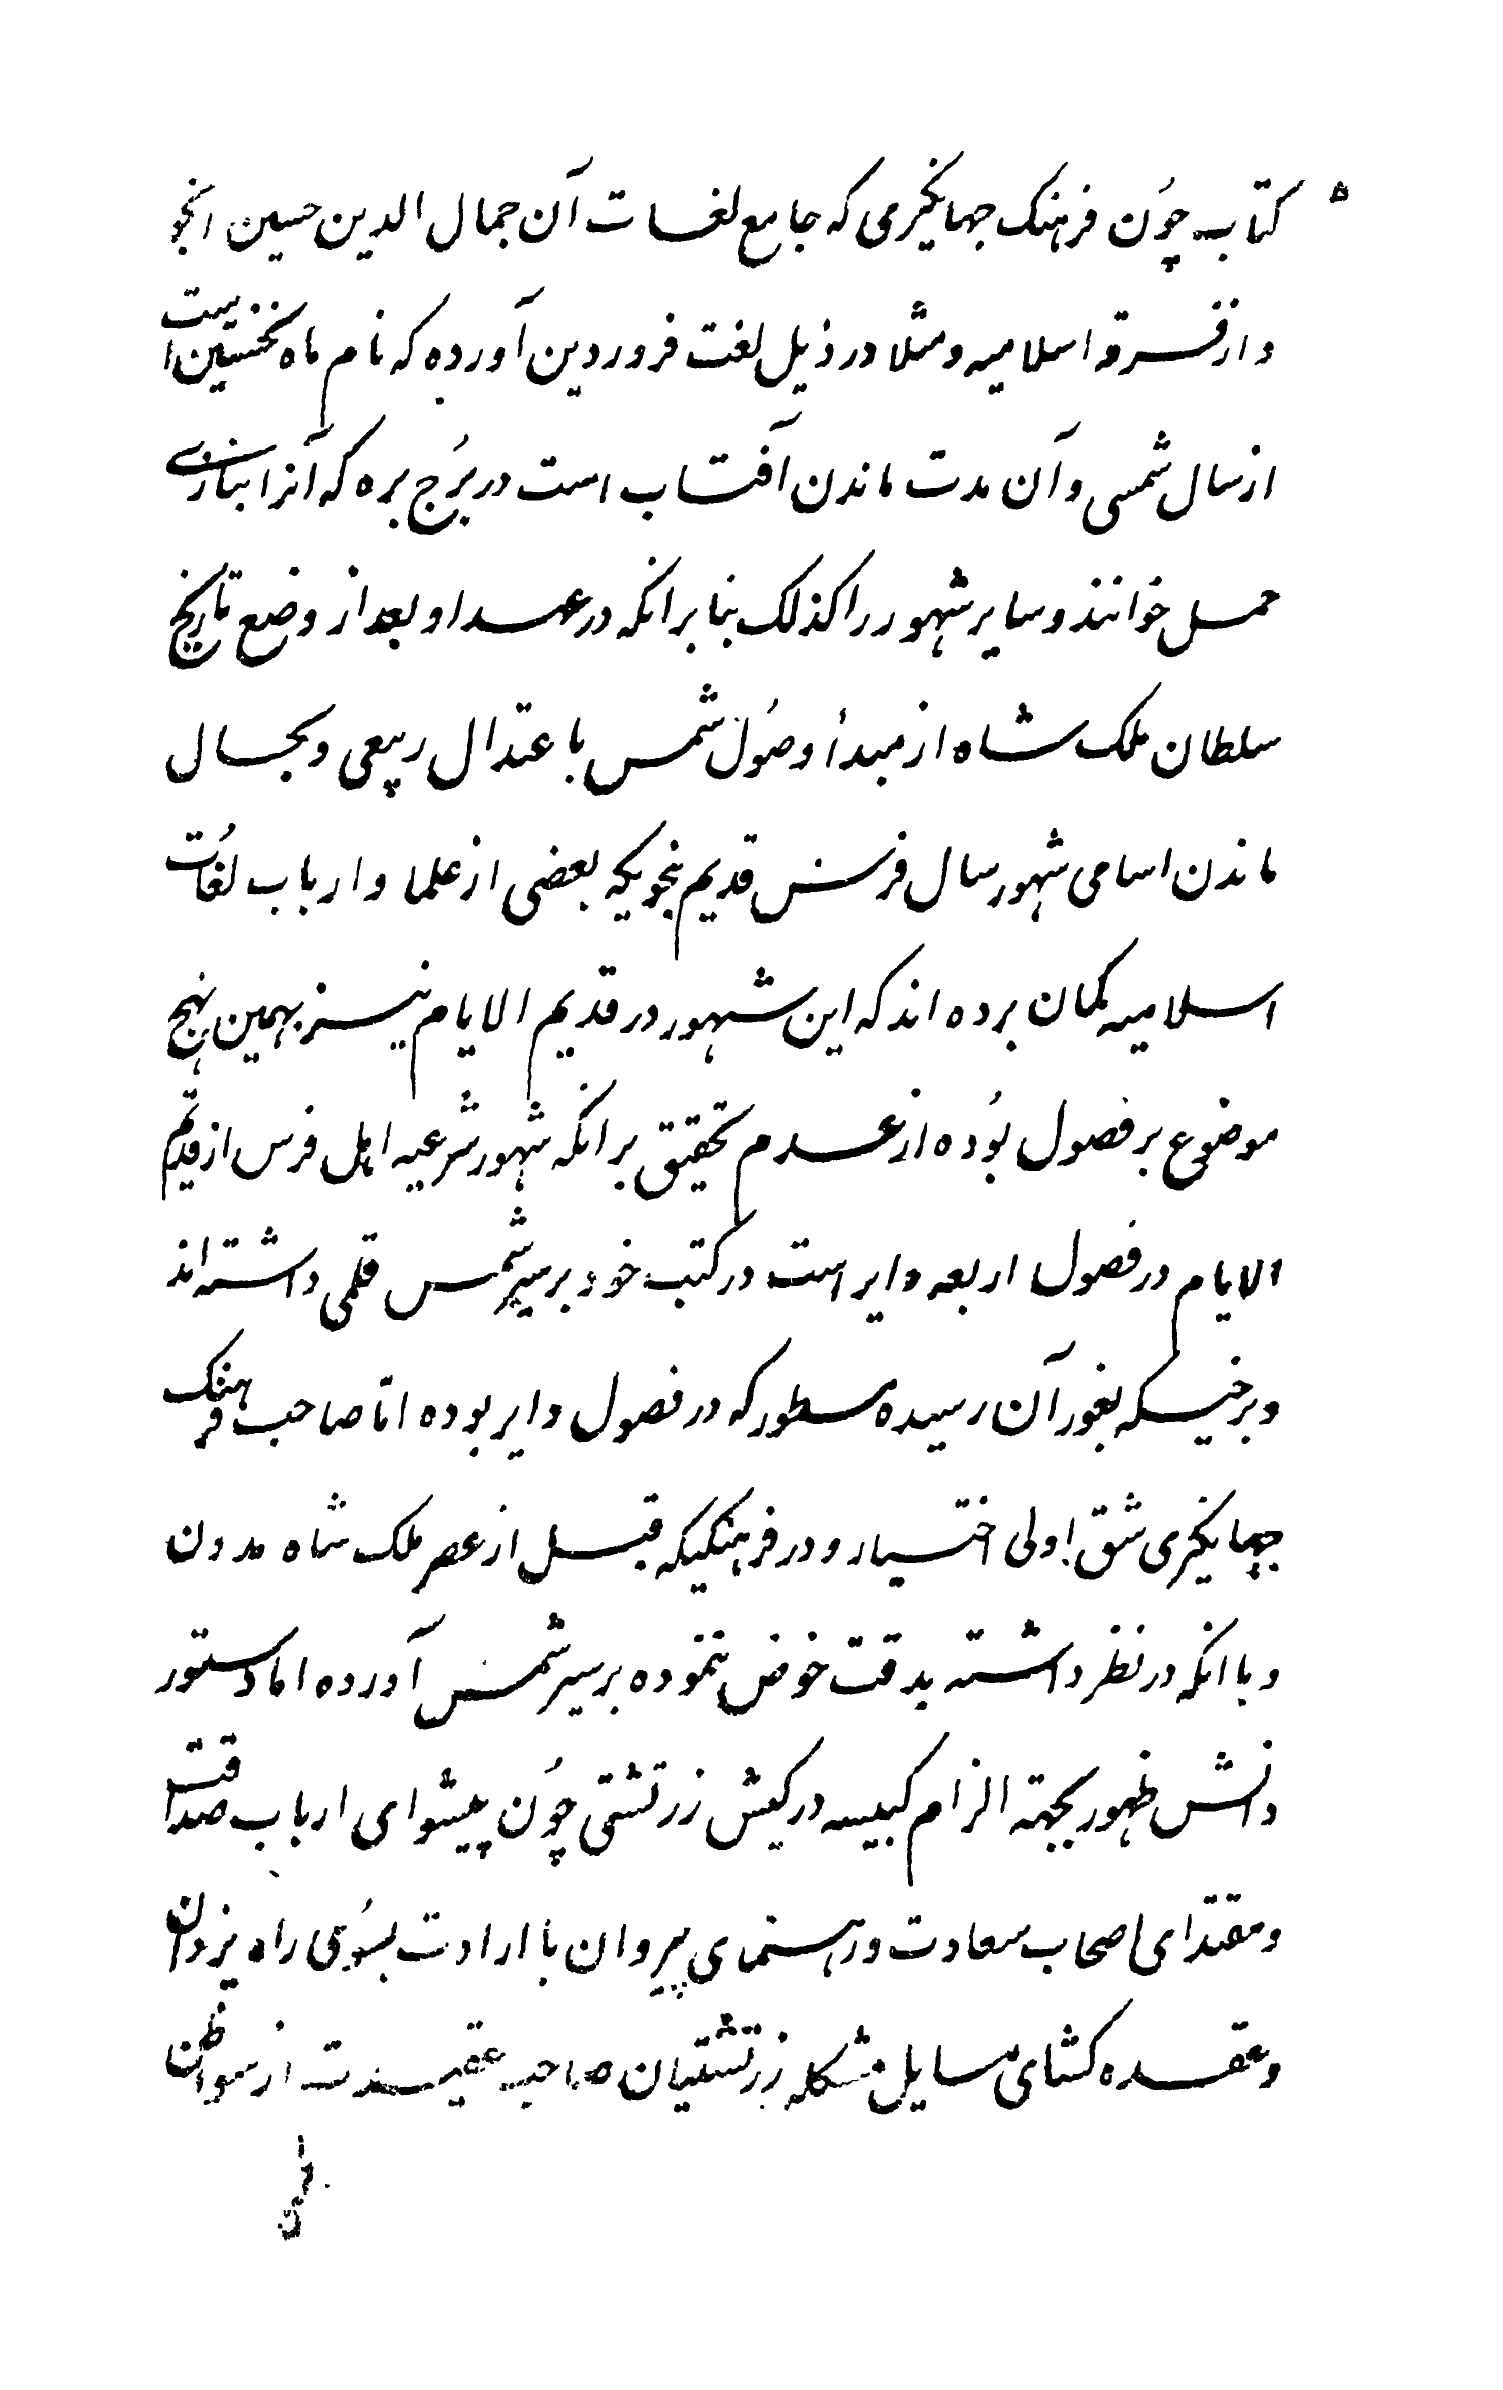 ۵ کتاب چُون فرهنک جهانکیری که جامع لغات آن جمال الدین حسین انجو
و از فرقه اسلامیه و مثلا در ذیل لغت فروردین آورده که نام ماه نخستین است
از سال شمسی و آن مدت ماندن آفتاب است در بُرج بره که آنرا بتازی
حمل خوانند و سایر شهور را کذلک بنا برانکه در عهد او بعد از وضع تاریخ
سلطان ملک شاه از مبدأ وصُول شمس باعتدال ربیعی و بحال
ماندن اسامی شهور سال فرس قدیم بنحویکه بعضی از علما و ارباب لغُات
اسلامیه کمان برده اند که این شهور در قدیم الایام نیز بهمین نهج
موضوع بر فصول بُوده از عدم تحقیق برانکه شهور شرعیه اهل فرس از قدیم
الایام در فصول اربعه دایر است در کتب خود بر سیر شمس قلمی داشته اند
و برخیکه بغور آن رسیده مسطور که در فصول دایر بوده امّا صاحب فرهنک
جهانکیری شق اولی اختیار و در فرهنکیکه قبل از عصر ملک شاه مدون
و با انکه در نظر داشته بدقت خوض ننموده بر سیر شمس آورده اما دستور
دانش ظهور بجهته الزام کبیسه در کیش زرتشتی چُون پیشوای ارباب صداقت
و مقتدای اصحاب سعادت و رهنمای پیروان با ارادت بسُوی راه یزدان
و عقده کشای مسایل مشکله زرتشتیان صاحب عقیدت از سوانطن